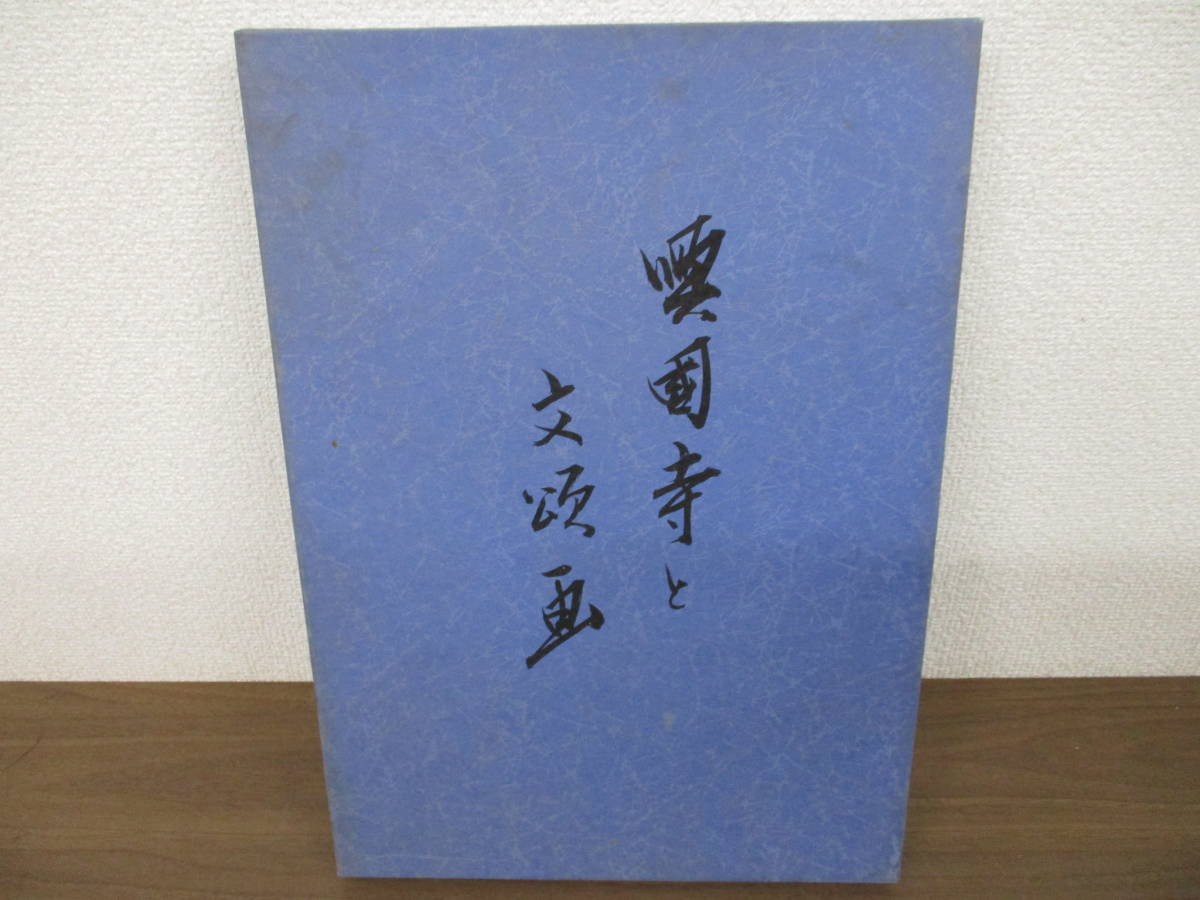 興國寺と
文頌画